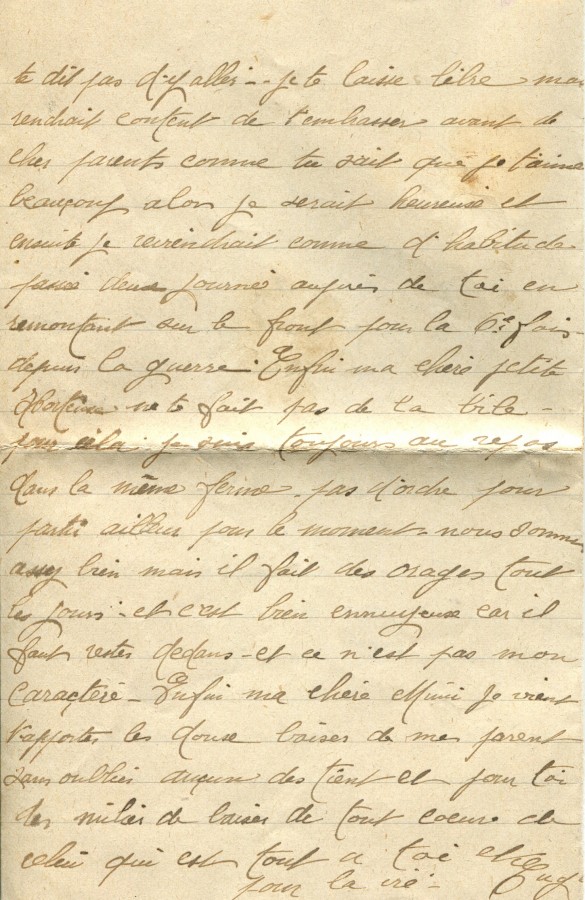 te dit pas d'y aller - je te laisse libre mai
rendrait content de t'embrasser avant de
cher parents comme tu sait que je t'aime
beaucoup alor je serait heureuse et
ensuite je reviendrait comme d'habitude
passé deux journé auprès de toi en
remontant sur le front pour la 6e fois
depuis la guerre. Enfin ma chère petite
Hortense ne te fait pas de la bile -
pour cela je suis toujours au repos
dans la même ferme. pas d'ordre pour
partir ailleur pour le moment. nous somme
assez bien mais il fait des orages tout
les jours - et c'est bien ennuyeuse car il
faut rester dedans - et ce n'est pas mon
caractère - Enfin ma chère Mimi je vient
t'apporter les douse baises de mes parent
sans oublier aucun des tient et pour toi
des milier de baises de tout coeur de
celui qui est tout a toi et
pour la vie - Eug